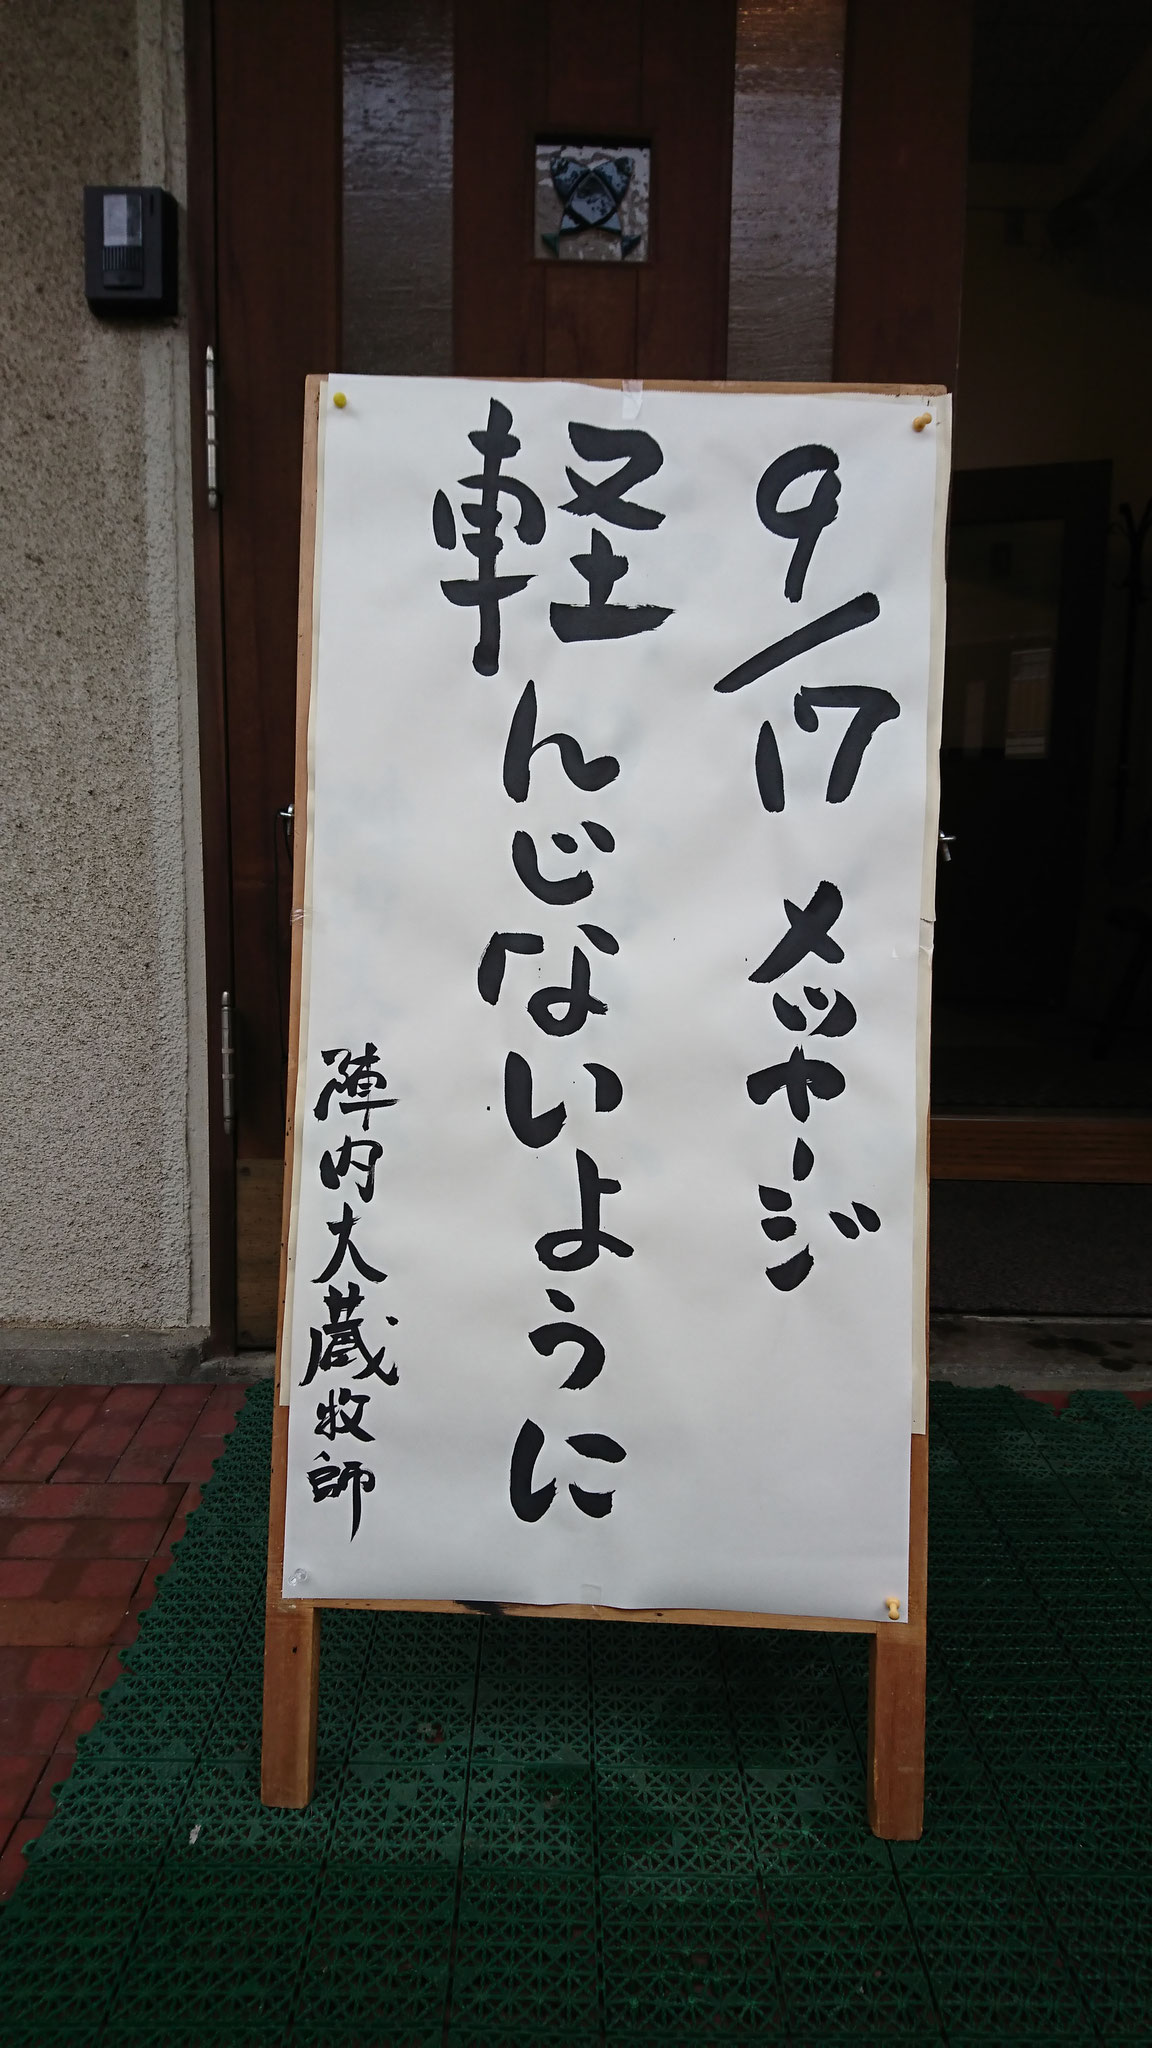 9/17 メッセージ
軽んじないように
陣内大蔵牧師